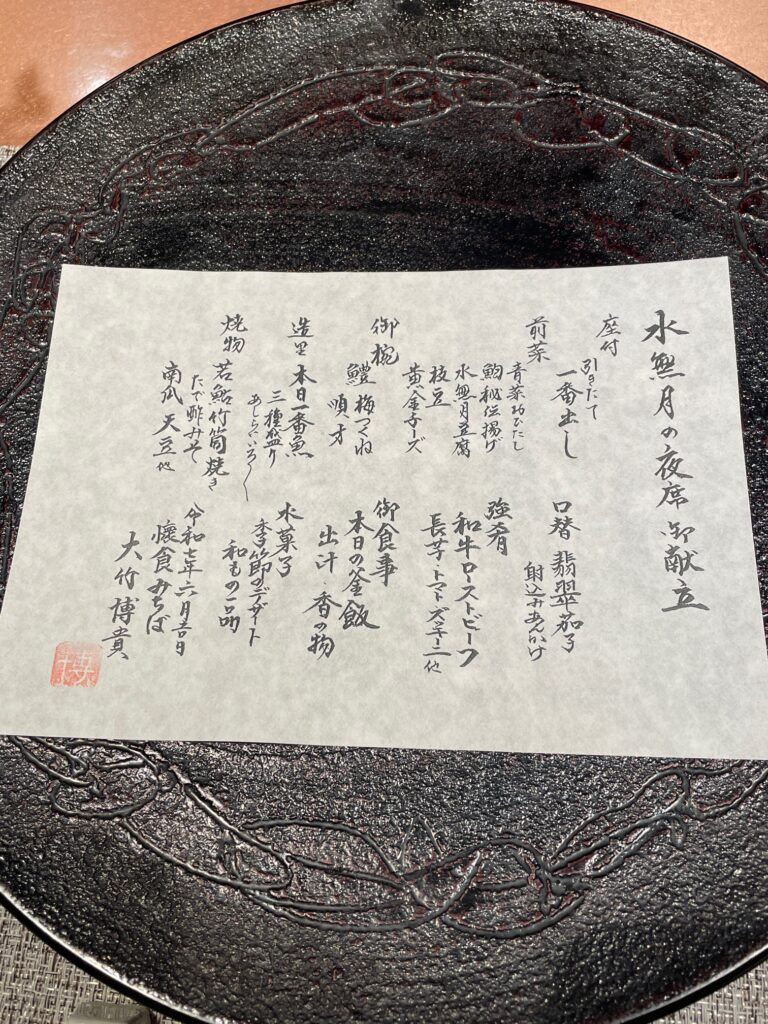 水無月の夜席 御献立
座付
引きたて
一番出し
前菜
青菜おひたし
秘伝揚げ
水無月豆腐
枝豆
黄金チーズ
御椀
鱧 梅つくね
順才
造里 本日一番魚
三種盛り
あしらいいろ〱
焼物 若鮎竹筒焼き
たで酢みそ
南瓜 天豆 他
口替 翡翠茄子
射込みあんかけ
強肴
和牛ローストビーフ
長芋・トマト・ズッキーニ 他
御食事
本日の釜飯
出汁・香の物
水菓子
季節のデザート
和もの一品
令和七年六月吉日
懐食みちば
大竹博貴